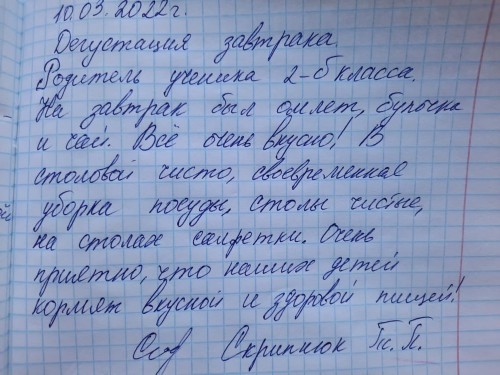 10.03.2022г.
Дегустация завтрака.
Родитель ученика 2-б класса.
На завтрак был омлет, булочка
и чай. Всё очень вкусно! В
столовой чисто, своевременная
уборка посуды, столы чистые,
на столах салфетки. Очень
приятно, что наших детей
кормят вкусной и здоровой пищей!
Скрипнюк